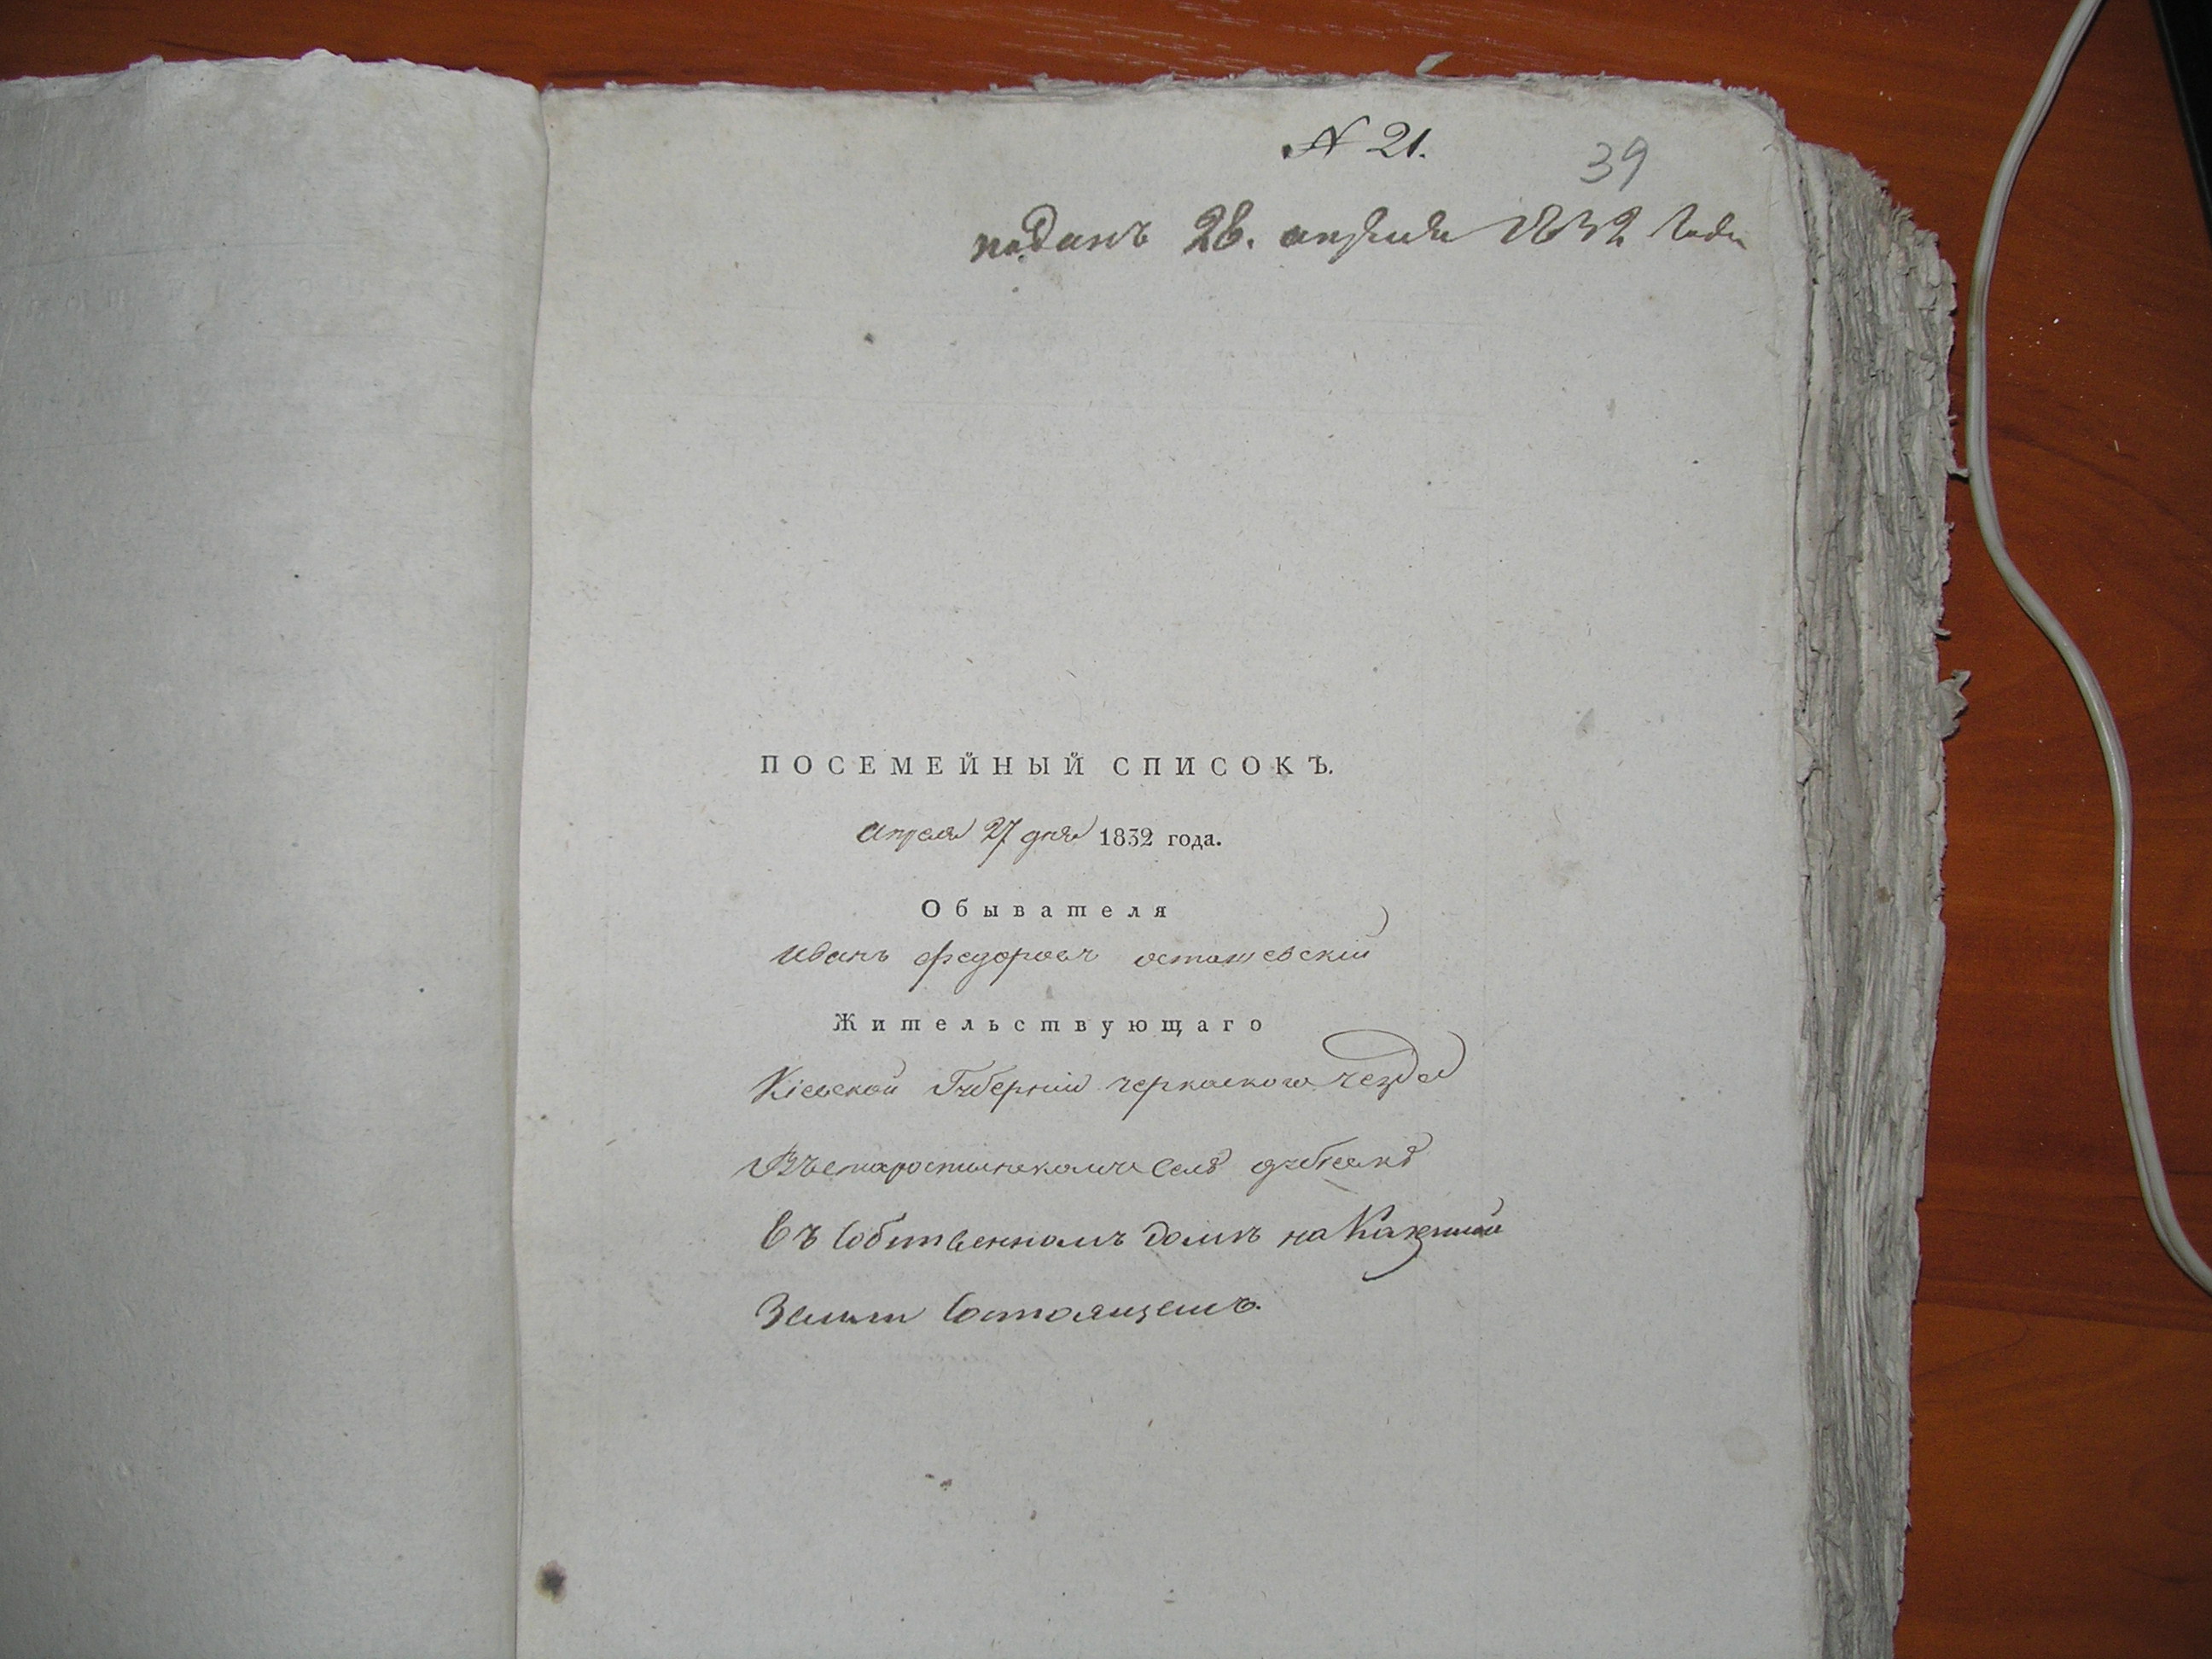 N 21.
39
поданъ 28. апреля 1832 года
ПОСЕМЕЙНЫЙ СПИСОКЪ.
Апреля 27 дня 1832 года.
Обывателя
Иванъ Федоровъ осташевскій
Жительствующаго
Кіевской Губерніи черкаского уезда
Въстаростинскомъ селѣ дубіевкѣ
Въ Собственномъ домѣ на Казенной
Земли Состоящемъ.